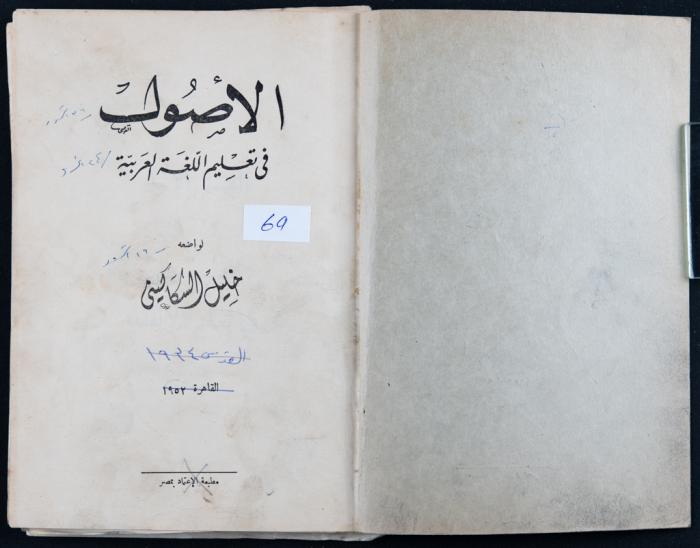 الأصول
في تعليم اللغة العربية
69
لواضعه
خليل السكاكيني
القدس ١٩٣٤
القاهرة ١٩٥٢
مطبعة الإعتماد بمصر